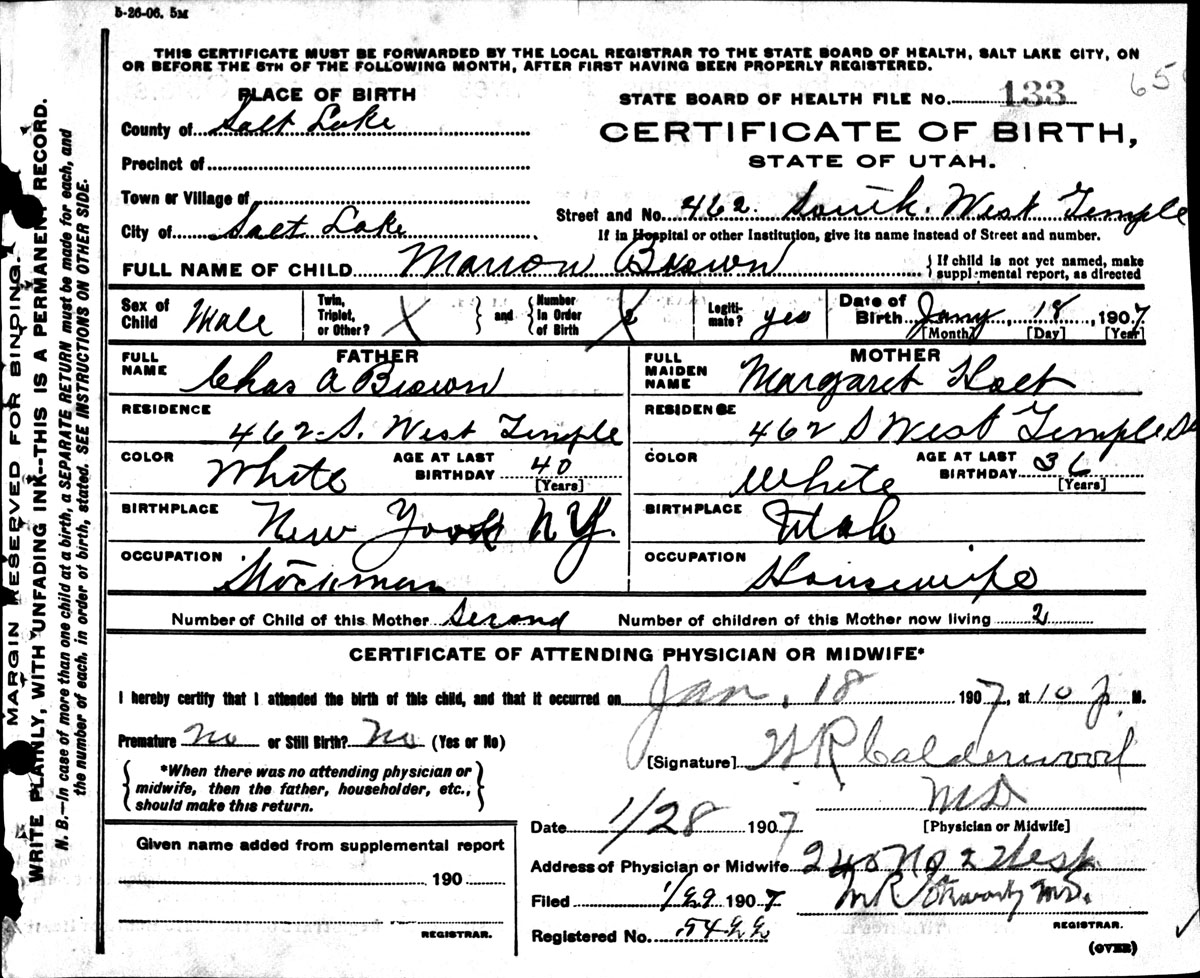 5-26-06. 5M
THIS CERTIFICATE MUST BE FORWARDED BY THE LOCAL REGISTRAR TO THE STATE BOARD OF HEALTH, SALT LAKE CITY, ON
OR BEFORE THE 5TH OF THE FOLLOWING MONTH, AFTER FIRST HAVING BEEN PROPERLY REGISTERED.
PLACE OF BIRTH
County of Salt Lake
Precinct of
Town or Village of
City of Salt Lake
STATE BOARD OF HEALTH FILE No. 133
65
CERTIFICATE OF BIRTH,
STATE OF UTAH.
Street and No. 462 South West Temple
If in Hospital or other Institution, give its name instead of Street and number.
FULL NAME OF CHILD Marion Brown
If child is not yet named, make
supplemental report, as directed
Sex of Child Male
Twin, Triplet, or Other? X and Number in Order of Birth
Legitimate? yes
Date of Birth Jany 18, 1907
[Month] [Day] [Year]
FATHER
FULL NAME Chas A Brown
RESIDENCE 462 S. West Temple
COLOR White AGE AT LAST BIRTHDAY 40 [Years]
BIRTHPLACE New York N Y.
OCCUPATION Stockman
MOTHER
FULL MAIDEN NAME Margaret Holt
RESIDENCE 462 S West Temple St
COLOR White AGE AT LAST BIRTHDAY 36 [Years]
BIRTHPLACE Utah
OCCUPATION Housewife
Number of Child of this Mother Second Number of children of this Mother now living 2
CERTIFICATE OF ATTENDING PHYSICIAN OR MIDWIFE*
I hereby certify that I attended the birth of this child, and that it occurred on Jan. 18 1907, at 10 p. M.
Premature No or Still Birth? No (Yes or No)
*When there was no attending physician or
midwife, then the father, householder, etc.,
should make this return.
[Signature] W R Calderwood
M D
[Physician or Midwife]
Date 1/28 1907
Address of Physician or Midwife 240 No 2 West
Filed 1/29 1907
M.D.
REGISTRAR.
Registered No. 5422
(OVER)
Given name added from supplemental report
190
REGISTRAR.
MARGIN RESERVED FOR BINDING.
WRITE PLAINLY, WITH UNFADING INK--THIS IS A PERMANENT RECORD.
N. B.—In case of more than one child at a birth, a SEPARATE RETURN must be made for each, and
the number of each, in order of birth, stated. SEE INSTRUCTIONS ON OTHER SIDE.